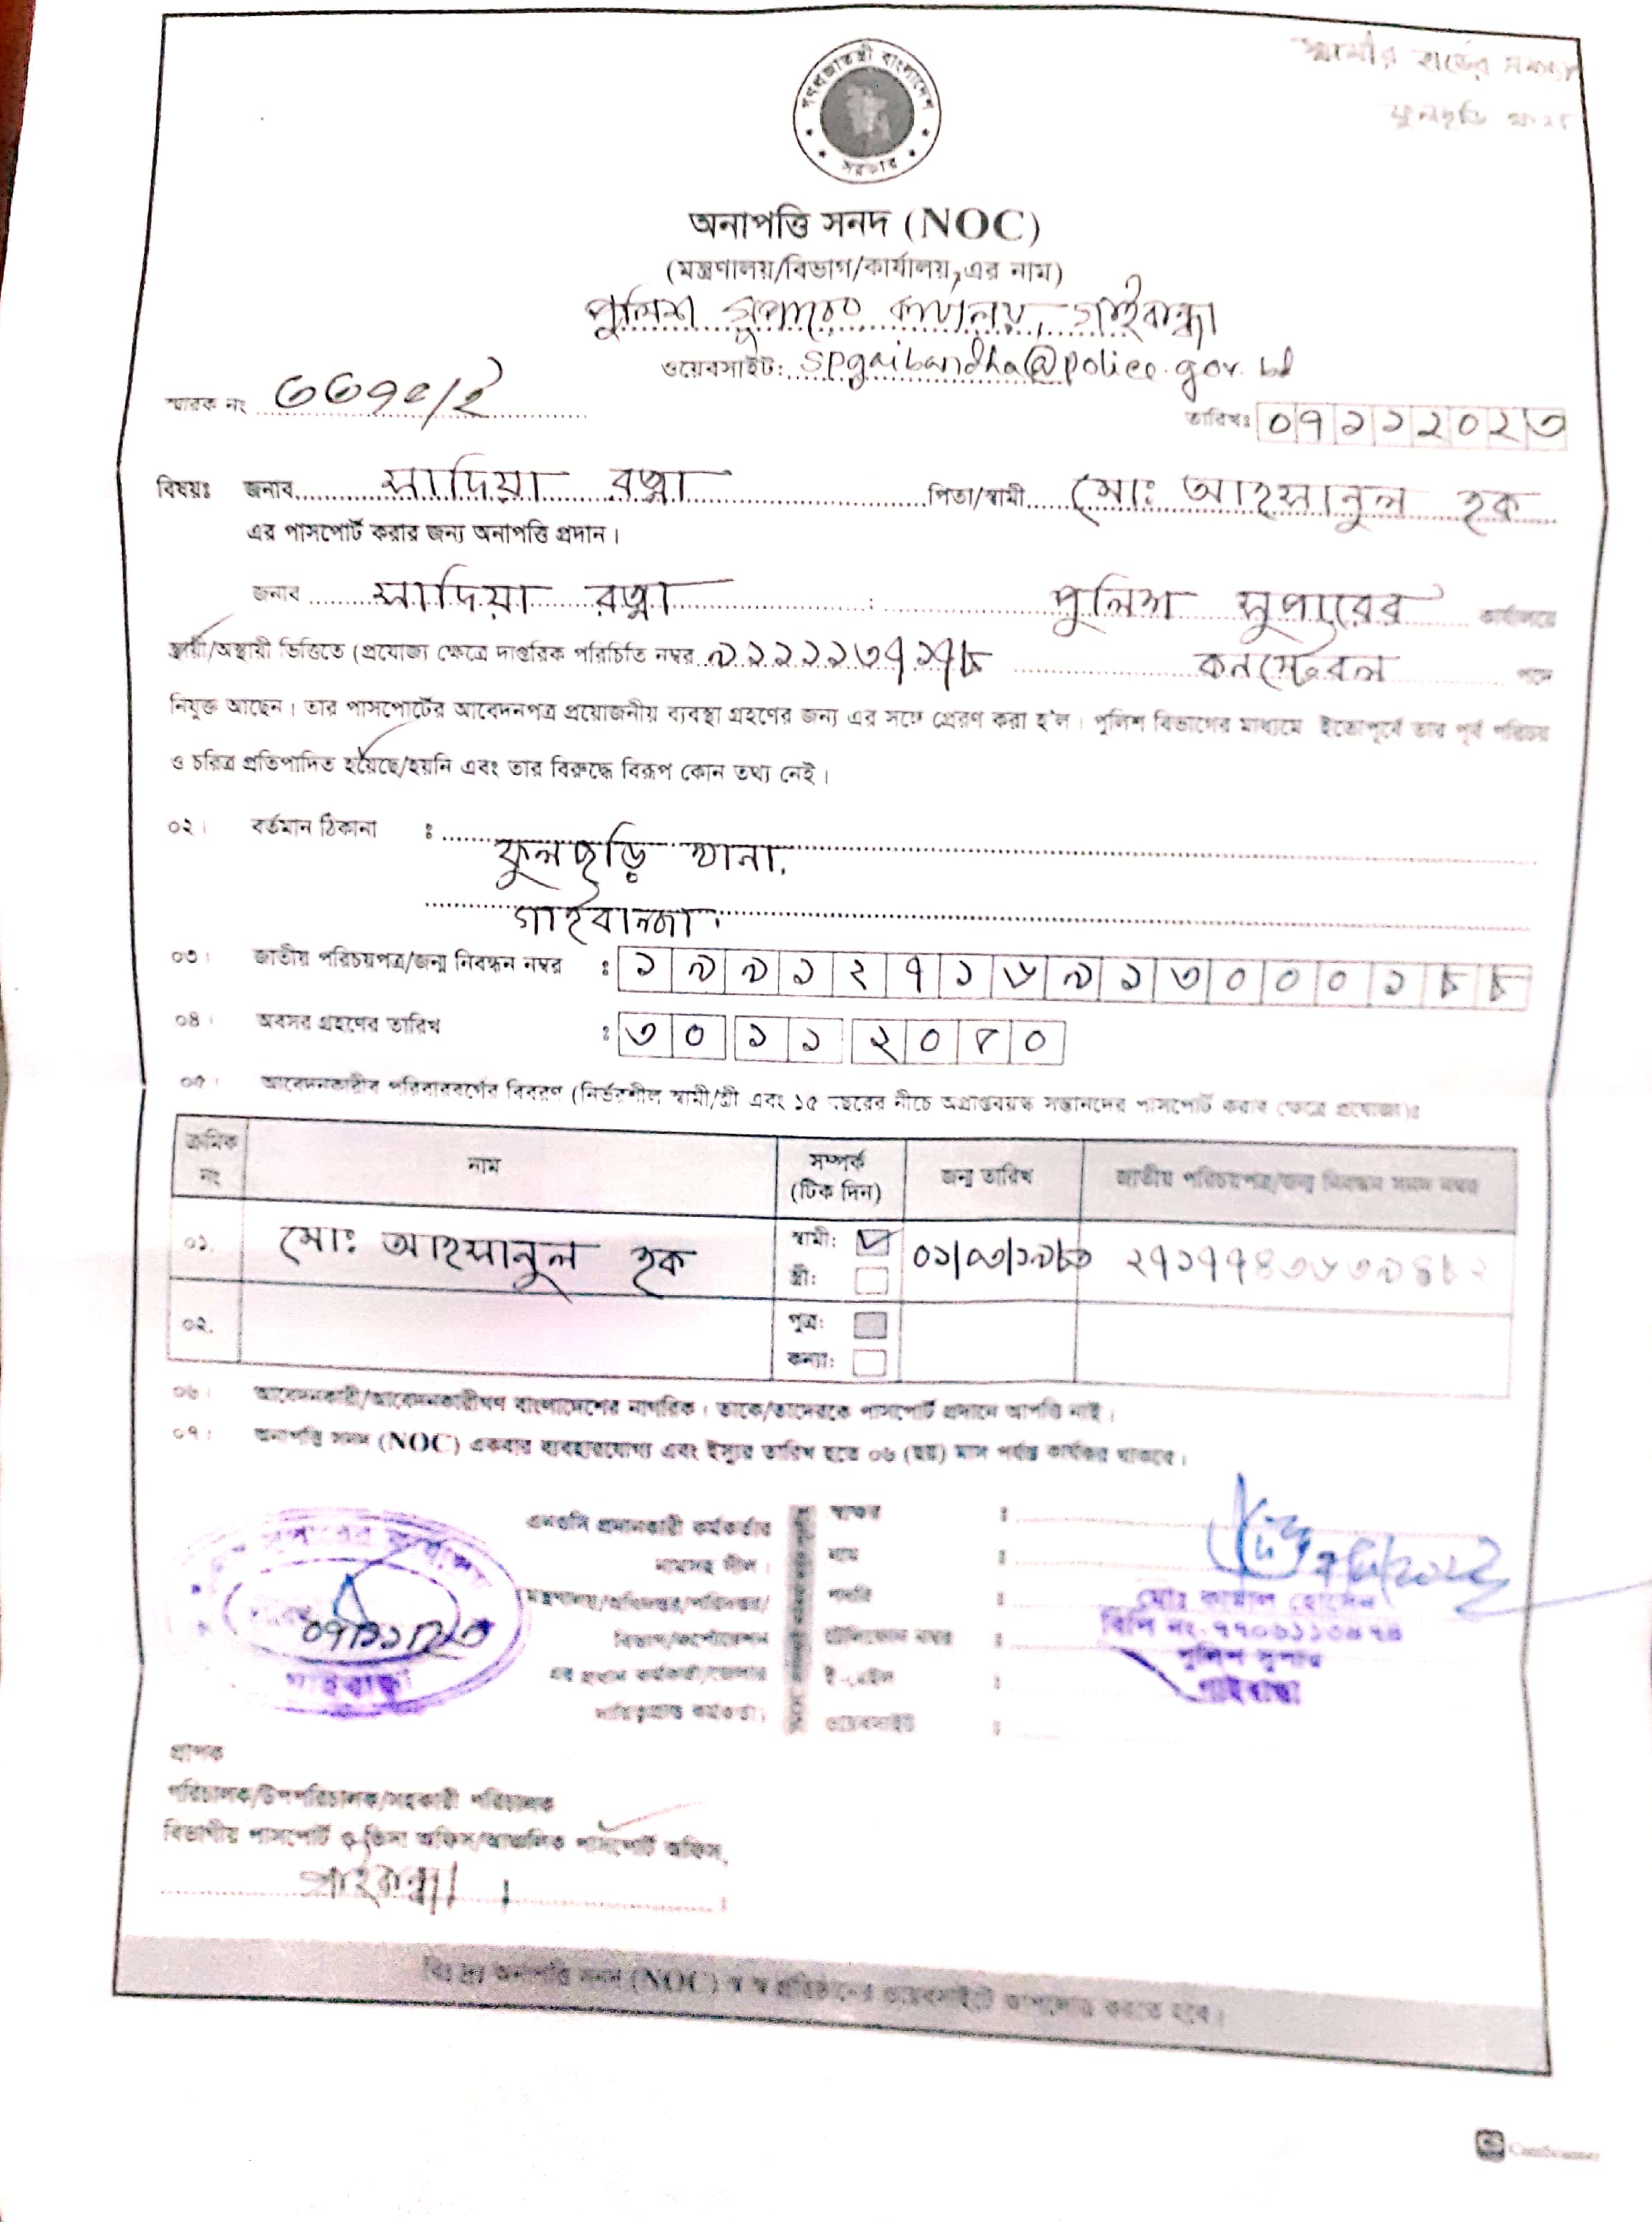 গণপ্রজাতন্ত্রী বাংলাদেশ
সরকার
অনাপত্তি সনদ (NOC)
(মন্ত্রণালয়/বিভাগ/কার্যালয়,এর নাম)
পুলিশ সুপারের কার্যালয়, গাইবান্ধা
ওয়েবসাইট: spgaibandha@police.gov.bd
স্মারক নং
তারিখঃ ০৭১১২০২৩
বিষয়ঃ জনাব সাদিয়া রত্না পিতা/স্বামী মোঃ আহসানুল হক
এর পাসপোর্ট করার জন্য অনাপত্তি প্রদান।
জনাব সাদিয়া রত্না : পুলিশ সুপারের কার্যালয়ে
স্থায়ী/অস্থায়ী ভিত্তিতে (প্রযোজ্য ক্ষেত্রে দাপ্তরিক পরিচিতি নম্বর ৯১১১১৩৭১৭৮ কনস্টেবল পদে
নিযুক্ত আছেন। তার পাসপোর্টের আবেদনপত্র প্রয়োজনীয় ব্যবস্থা গ্রহণের জন্য এর সঙ্গে প্রেরণ করা হ'ল। পুলিশ বিভাগের মাধ্যমে ইতোপূর্বে তার পূর্ব পরিচয়
ও চরিত্র প্রতিপাদিত হয়েছে/হয়নি এবং তার বিরুদ্ধে বিরূপ কোন তথ্য নেই।
০২। বর্তমান ঠিকানা : ফুলছড়ি থানা,
গাইবান্ধা।
০৩। জাতীয় পরিচয়পত্র/জন্ম নিবন্ধন নম্বর : ১৯৯১২৭১৬৯১৩০০০১৮৮
০৪। অবসর গ্রহণের তারিখ : ৩০ ১১ ২০৫০
০৫। আবেদনকারীর পরিবারবর্গের বিবরণ (নির্ভরশীল স্বামী/স্ত্রী এবং ১৫ বছরের নীচে অপ্রাপ্তবয়স্ক সন্তানদের পাসপোর্ট করার ক্ষেত্রে প্রযোজ্য)ঃ
ক্রমিক নং নাম সম্পর্ক (টিক দিন) জন্ম তারিখ জাতীয় পরিচয়পত্র/জন্ম নিবন্ধন সনদ নম্বর
০১. মোঃ আহসানুল হক স্বামী: ০১/০৩/১৯৮৩
স্ত্রী:
০২. পুত্র:
কন্যা:
০৬। আবেদনকারী/আবেদনকারীগণ বাংলাদেশের নাগরিক। তাকে/তাদেরকে পাসপোর্ট প্রদানে আপত্তি নাই।
০৭। অনাপত্তি সনদ (NOC) একবার ব্যবহারযোগ্য এবং ইস্যুর তারিখ হতে ০৬ (ছয়) মাস পর্যন্ত কার্যকর থাকবে।
এনওসি প্রদানকারী কর্মকর্তার স্বাক্ষর :
নামসহ সীল। নাম :
মন্ত্রণালয়/অধিদপ্তর/পরিদপ্তর/ পদবি :
বিভাগ/কর্পোরেশন টেলিফোন নম্বর :
এর প্রধান কর্মকর্তা/জেলার ই-মেইল :
দায়িত্বপ্রাপ্ত কর্মকর্তা। ওয়েবসাইট :
মোঃ কামাল হোসেন
পুলিশ সুপার
গাইবান্ধা
গাইবান্ধা
প্রাপক
পরিচালক/উপপরিচালক/সহকারী পরিচালক
বিভাগীয় পাসপোর্ট ও ভিসা অফিস/আঞ্চলিক পাসপোর্ট অফিস,
গাইবান্ধা।
বিঃ দ্রঃ অনাপত্তি সনদ (NOC) স্ব স্ব প্রতিষ্ঠানের ওয়েবসাইটে আপলোড করতে হবে।
CamScanner